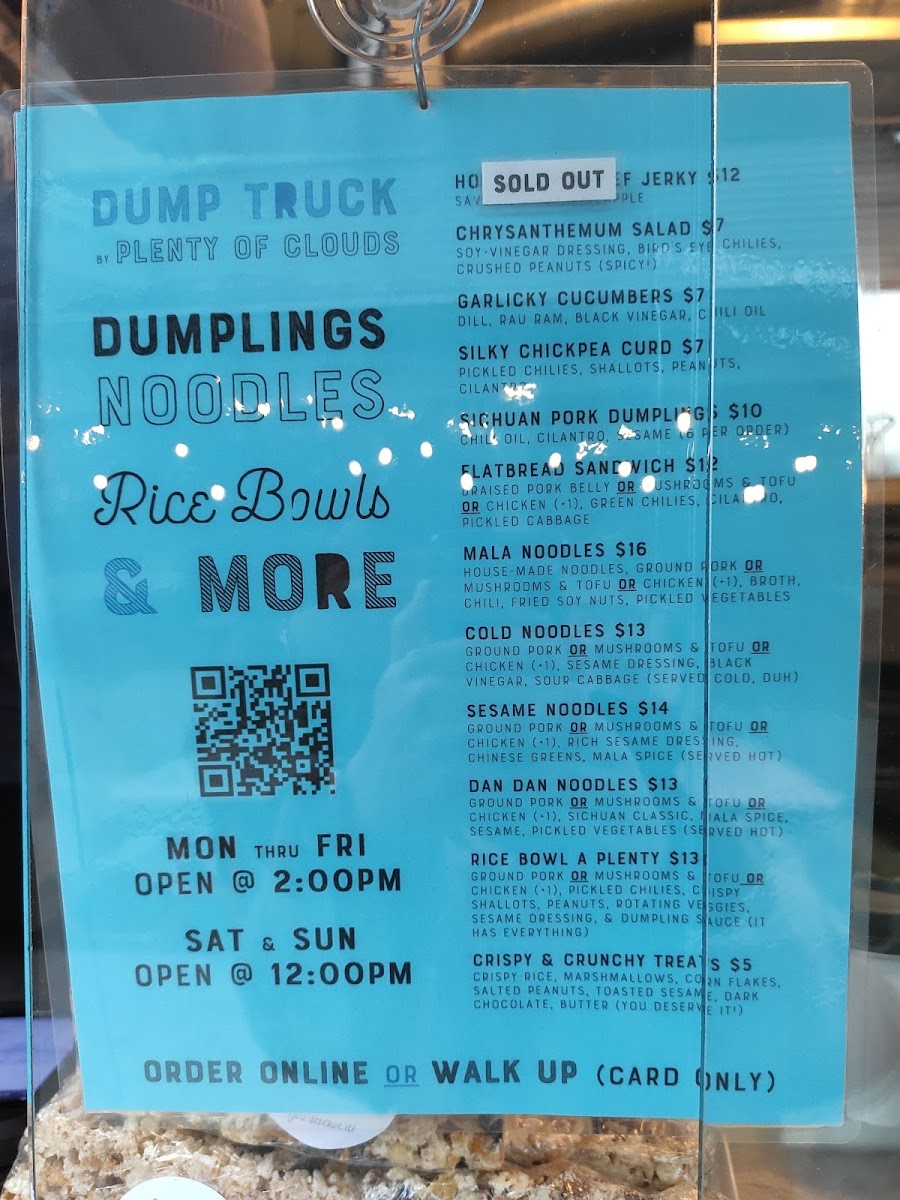 DUMP TRUCK
BY PLENTY OF CLOUDS
DUMPLINGS
NOODLES
Rice Bowls
& MORE
MON THRU FRI
OPEN @ 2:00PM
SAT & SUN
OPEN @ 12:00PM
HO SOLD OUT EF JERKY $12
SAV PPLE
CHRYSANTHEMUM SALAD $7
SOY-VINEGAR DRESSING, BIRD'S EYE CHILIES,
CRUSHED PEANUTS (SPICY!)
GARLICKY CUCUMBERS $7
DILL, RAU RAM, BLACK VINEGAR, CHILI OIL
SILKY CHICKPEA CURD $7
PICKLED CHILIES, SHALLOTS, PEANUTS,
CILANTRO
SICHUAN PORK DUMPLINGS $10
CHILI OIL, CILANTRO, SESAME (6 PER ORDER)
FLATBREAD SANDWICH $12
BRAISED PORK BELLY OR MUSHROOMS & TOFU
OR CHICKEN (+1), GREEN CHILIES, CILANTRO,
PICKLED CABBAGE
MALA NOODLES $16
HOUSE-MADE NOODLES, GROUND PORK OR
MUSHROOMS & TOFU OR CHICKEN (+1), BROTH,
CHILI, FRIED SOY NUTS, PICKLED VEGETABLES
COLD NOODLES $13
GROUND PORK OR MUSHROOMS & TOFU OR
CHICKEN (+1), SESAME DRESSING, BLACK
VINEGAR, SOUR CABBAGE (SERVED COLD, DUH)
SESAME NOODLES $14
GROUND PORK OR MUSHROOMS & TOFU OR
CHICKEN (+1), RICH SESAME DRESSING,
CHINESE GREENS, MALA SPICE (SERVED HOT)
DAN DAN NOODLES $13
GROUND PORK OR MUSHROOMS & TOFU OR
CHICKEN (+1), SICHUAN CLASSIC, MALA SPICE,
SESAME, PICKLED VEGETABLES (SERVED HOT)
RICE BOWL A PLENTY $13
GROUND PORK OR MUSHROOMS & TOFU OR
CHICKEN (+1), PICKLED CHILIES, CRISPY
SHALLOTS, PEANUTS, ROTATING VEGGIES,
SESAME DRESSING, & DUMPLING SAUCE (IT
HAS EVERYTHING)
CRISPY & CRUNCHY TREATS $5
CRISPY RICE, MARSHMALLOWS, CORN FLAKES,
SALTED PEANUTS, TOASTED SESAME, DARK
CHOCOLATE, BUTTER (YOU DESERVE IT!)
ORDER ONLINE OR WALK UP (CARD ONLY)